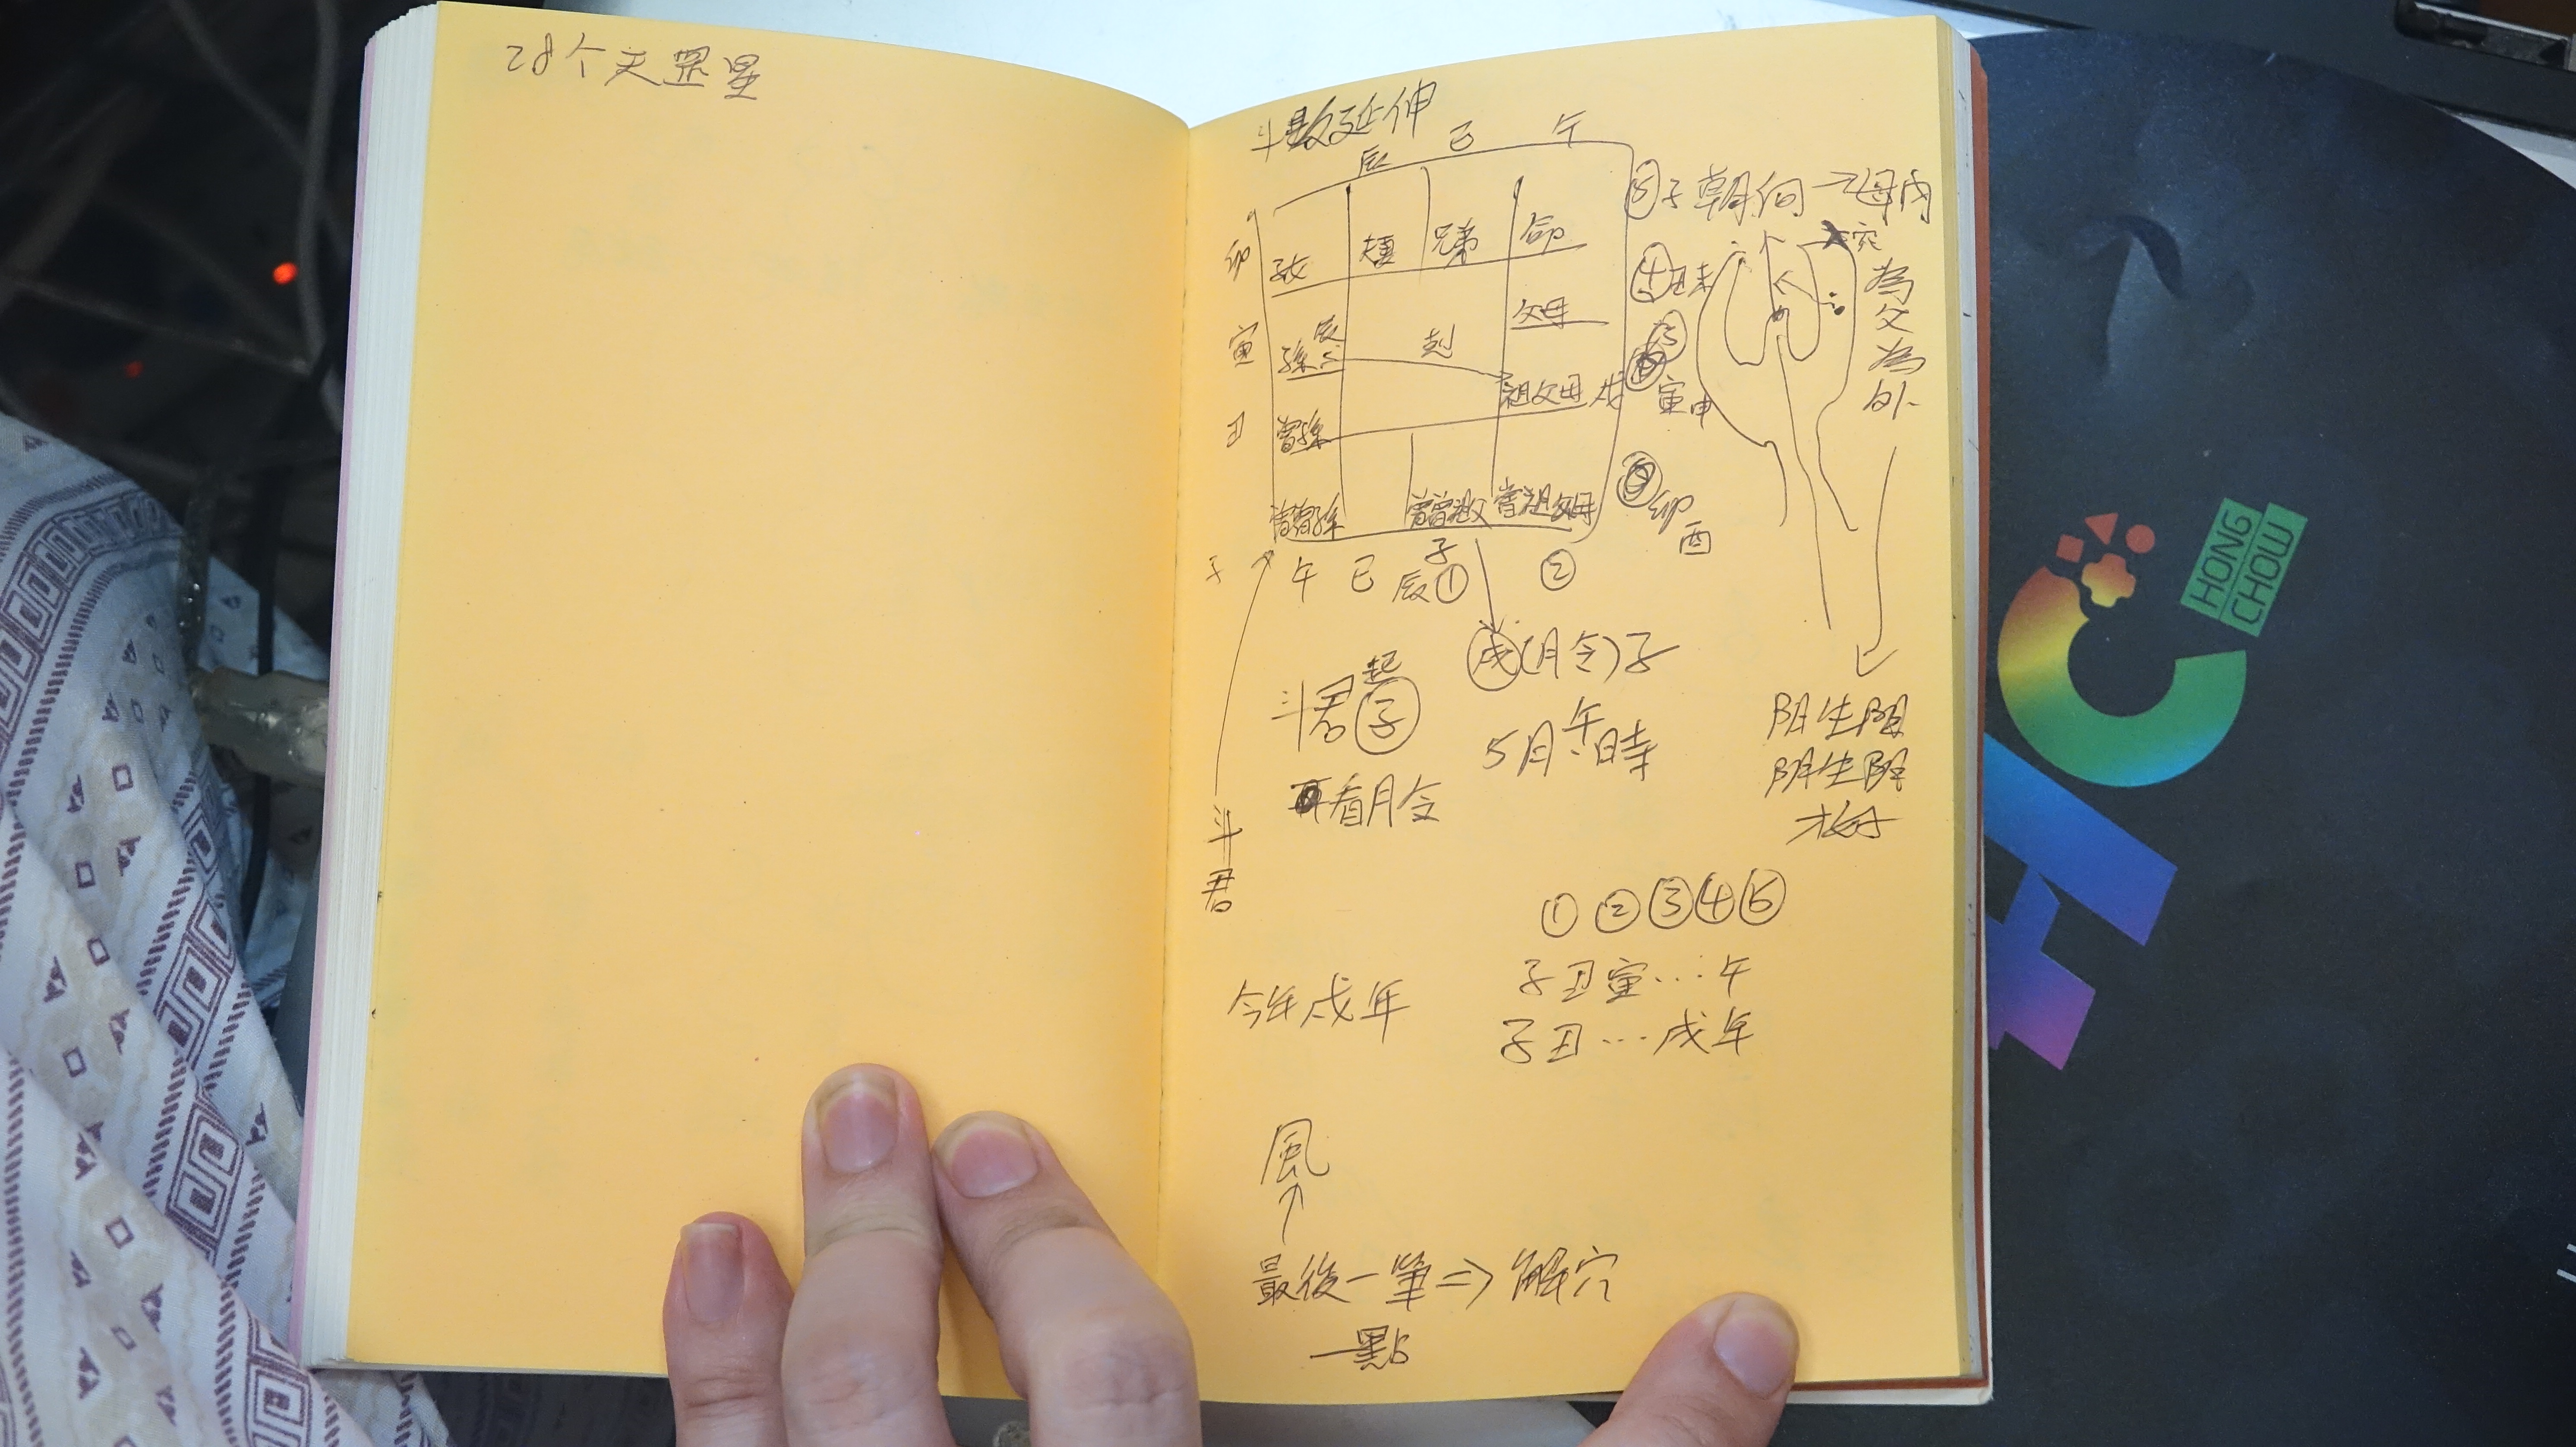 28个天罡星
斗數延伸
辰 巳 午
卯 子女 夫妻 兄弟 命
父母
寅 孫 辰
祖父母 戌
丑 曾孫
曾曾孫 曾祖父母
子 午 巳 辰 子 ① ②
子 朝向 → 母 內
穴
為
父
為
外
④ 丑未
⑤ 寅申
卯
酉
戌(月令)子
斗君起子
5月午時
再看月令
斗
君
陽生陽
陰生陰
① ② ③ ④ ⑤
子丑寅...午
今年戌年
子丑...戌年
風
↑
最後一筆 ⇒ 解穴
一點
HONG
CHOW